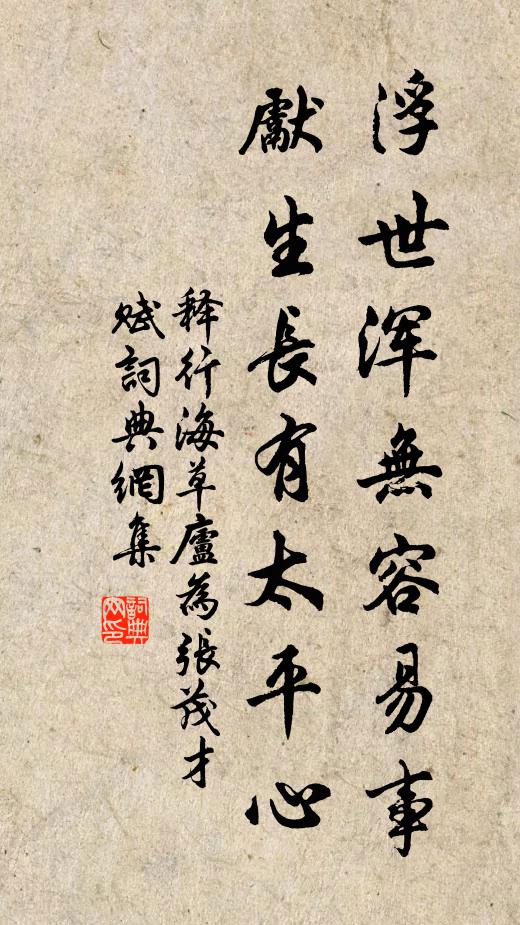 浮世浑無容易事
獻生長有太平心
释行海草廬為張茂才
赋詞典網集
詞典
网印